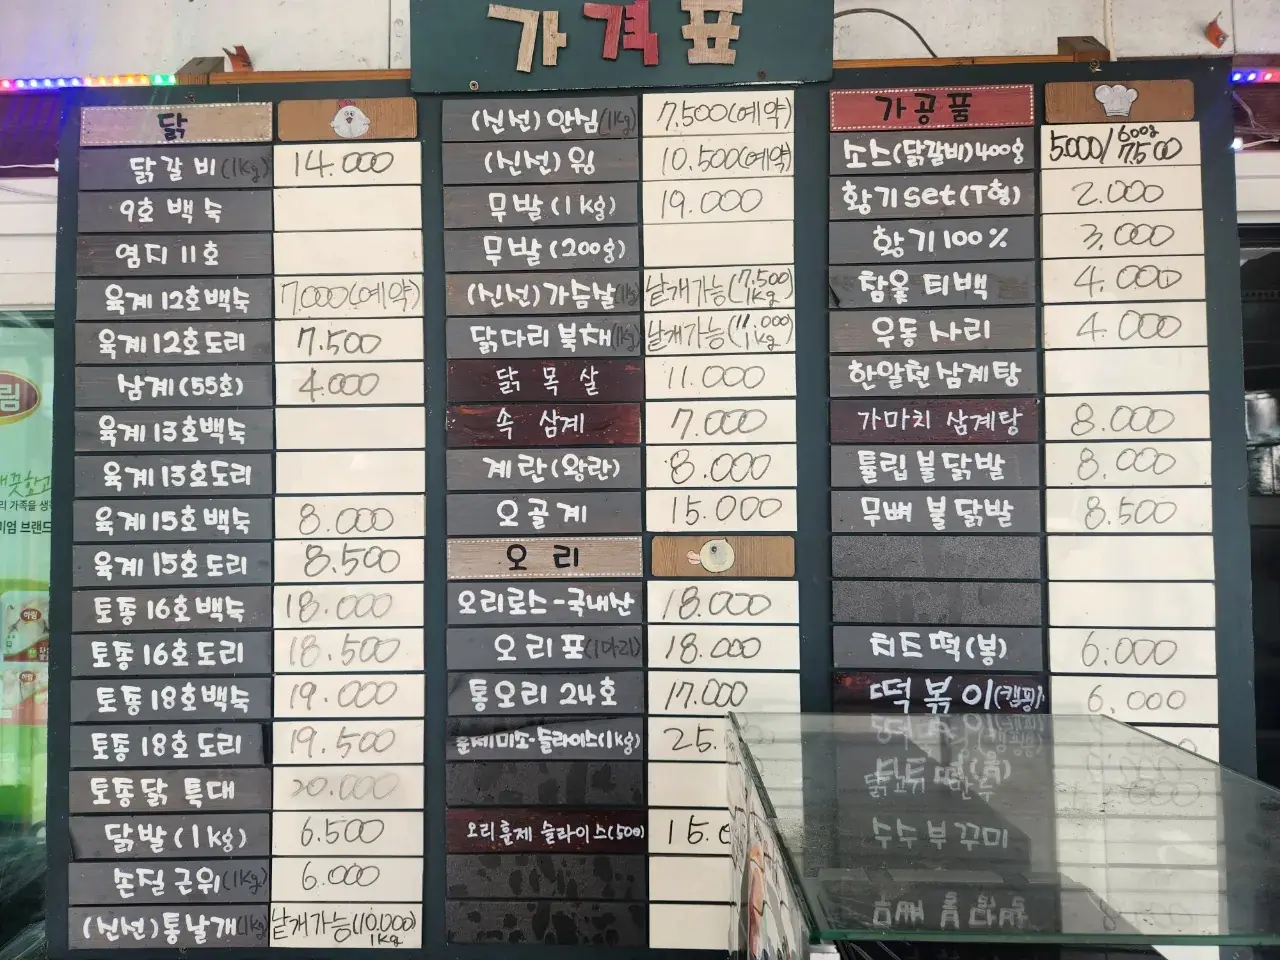 가격표
닭
닭갈비(1kg) 14.000
9호 백숙
염지 11호
육계12호백숙 7.000(예약)
육계12호도리 7.500
삼계(55호) 4.000
육계13호백숙
육계13호도리
육계15호백숙 8.000
육계15호도리 8.500
토종16호백숙 18.000
토종16호도리 18.500
토종18호백숙 19.000
토종18호도리 19.500
토종닭 특대 20.000
닭발(1kg) 6.500
손질근위(1kg) 6.000
(신선)통날개(1kg) 낱개가능(10.000) 1kg
(신선)안심(1kg) 7.500(예약)
(신선)윙 10.500(예약)
무발(1kg) 19.000
무발(200g)
(신선)가슴살(1kg) 낱개가능(7.500) 1kg
닭다리북채(1kg) 낱개가능(11.000) 1kg
닭목살 11.000
속 삼계 7.000
계란(왕란) 8.000
오골계 15.000
오리
오리로스-국내산 18.000
오리포(1마리) 18.000
통오리 24호 17.000
훈제미소-슬라이스(1kg) 25.
오리훈제 슬라이스(500) 15.0
가공품
소스(닭갈비)400g 5.000/600g 7.500
황기set(T형) 2.000
황기100% 3.000
참옻 티백 4.000
우동사리 4.000
한알천삼계탕
가마치 삼계탕 8.000
튤립불닭발 8.000
무뼈 불닭발 8.500
치즈떡(봉) 6.000
떡볶이(캠핑) 6.000
수수부꾸미